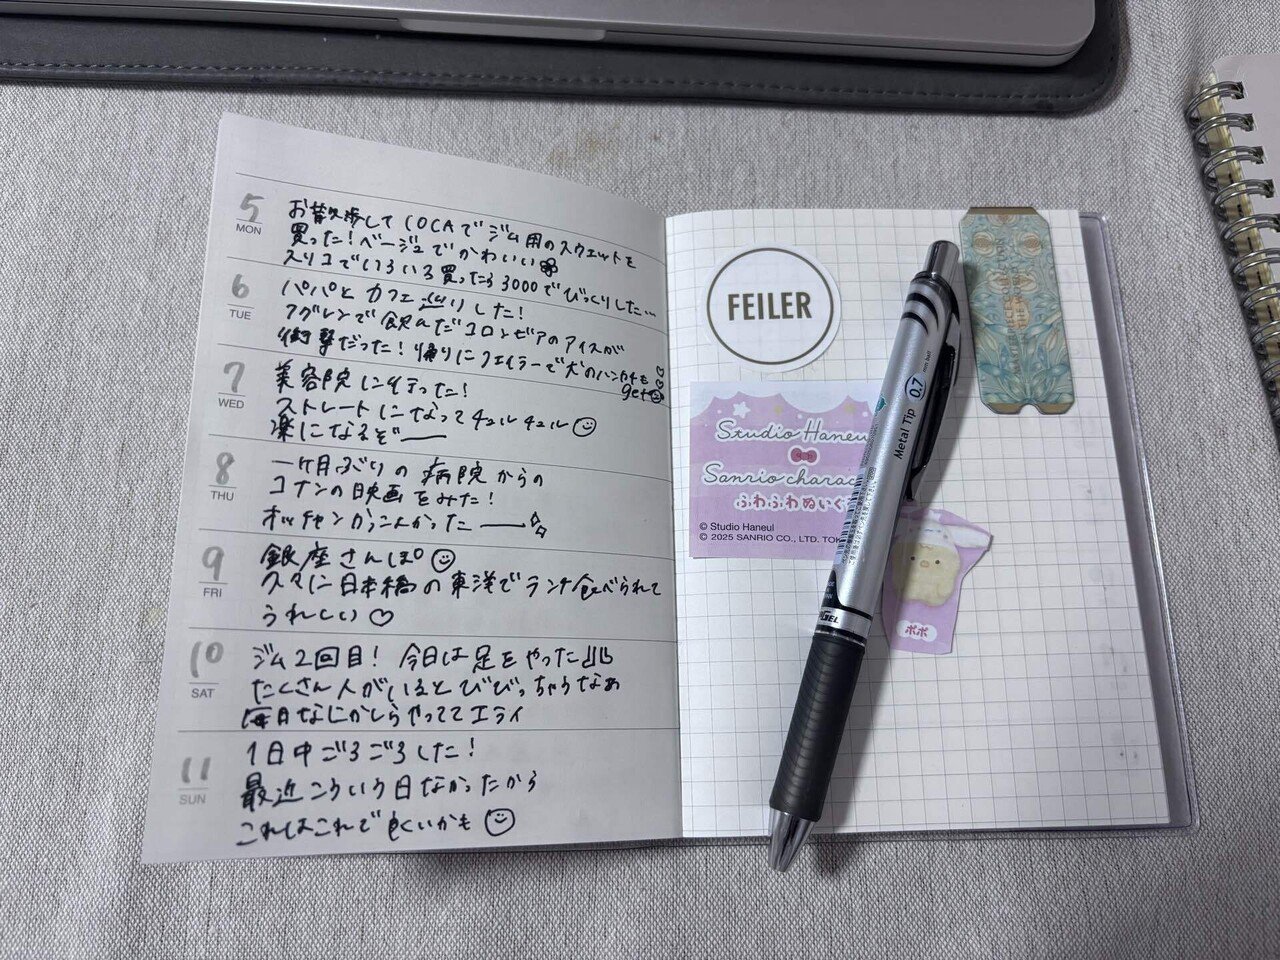 5
MON
お散歩して COCAでジム用のスウェットを
買った!ベージュでかわいい
スリコでいろいろ買ったら3000でびっくりした…
6
TUE
パパとカフェ巡りした!
フグレンで飲んだコロンビアのアイスが
衝撃だった!帰りにフェイラーで犬のハンカチも
get
7
WED
美容院に行った!
ストレートになってチュルチュル
楽になるぞー
8
THU
一ヶ月ぶりの病院からの
コナンの映画をみた!
オッチャンかっこよかったー
9
FRI
銀座さんぽ
久々に日本橋の東洋でランチ食べられて
うれしい♡
10
SAT
ジム2回目! 今日は足をやった
たくさん人がいるとびびっちゃうなぁ
毎日なにかしらやっててエライ
11
SUN
1日中ごろごろした!
最近こういう日なかったから
これはこれで良いかも
FEILER
Studio Haneul
Sanrio charac
ふわふわぬいぐ
© Studio Haneul
© 2025 SANRIO CO., LTD. TOK
ポポ
Metal Tip 0.7 mm ball
GEL